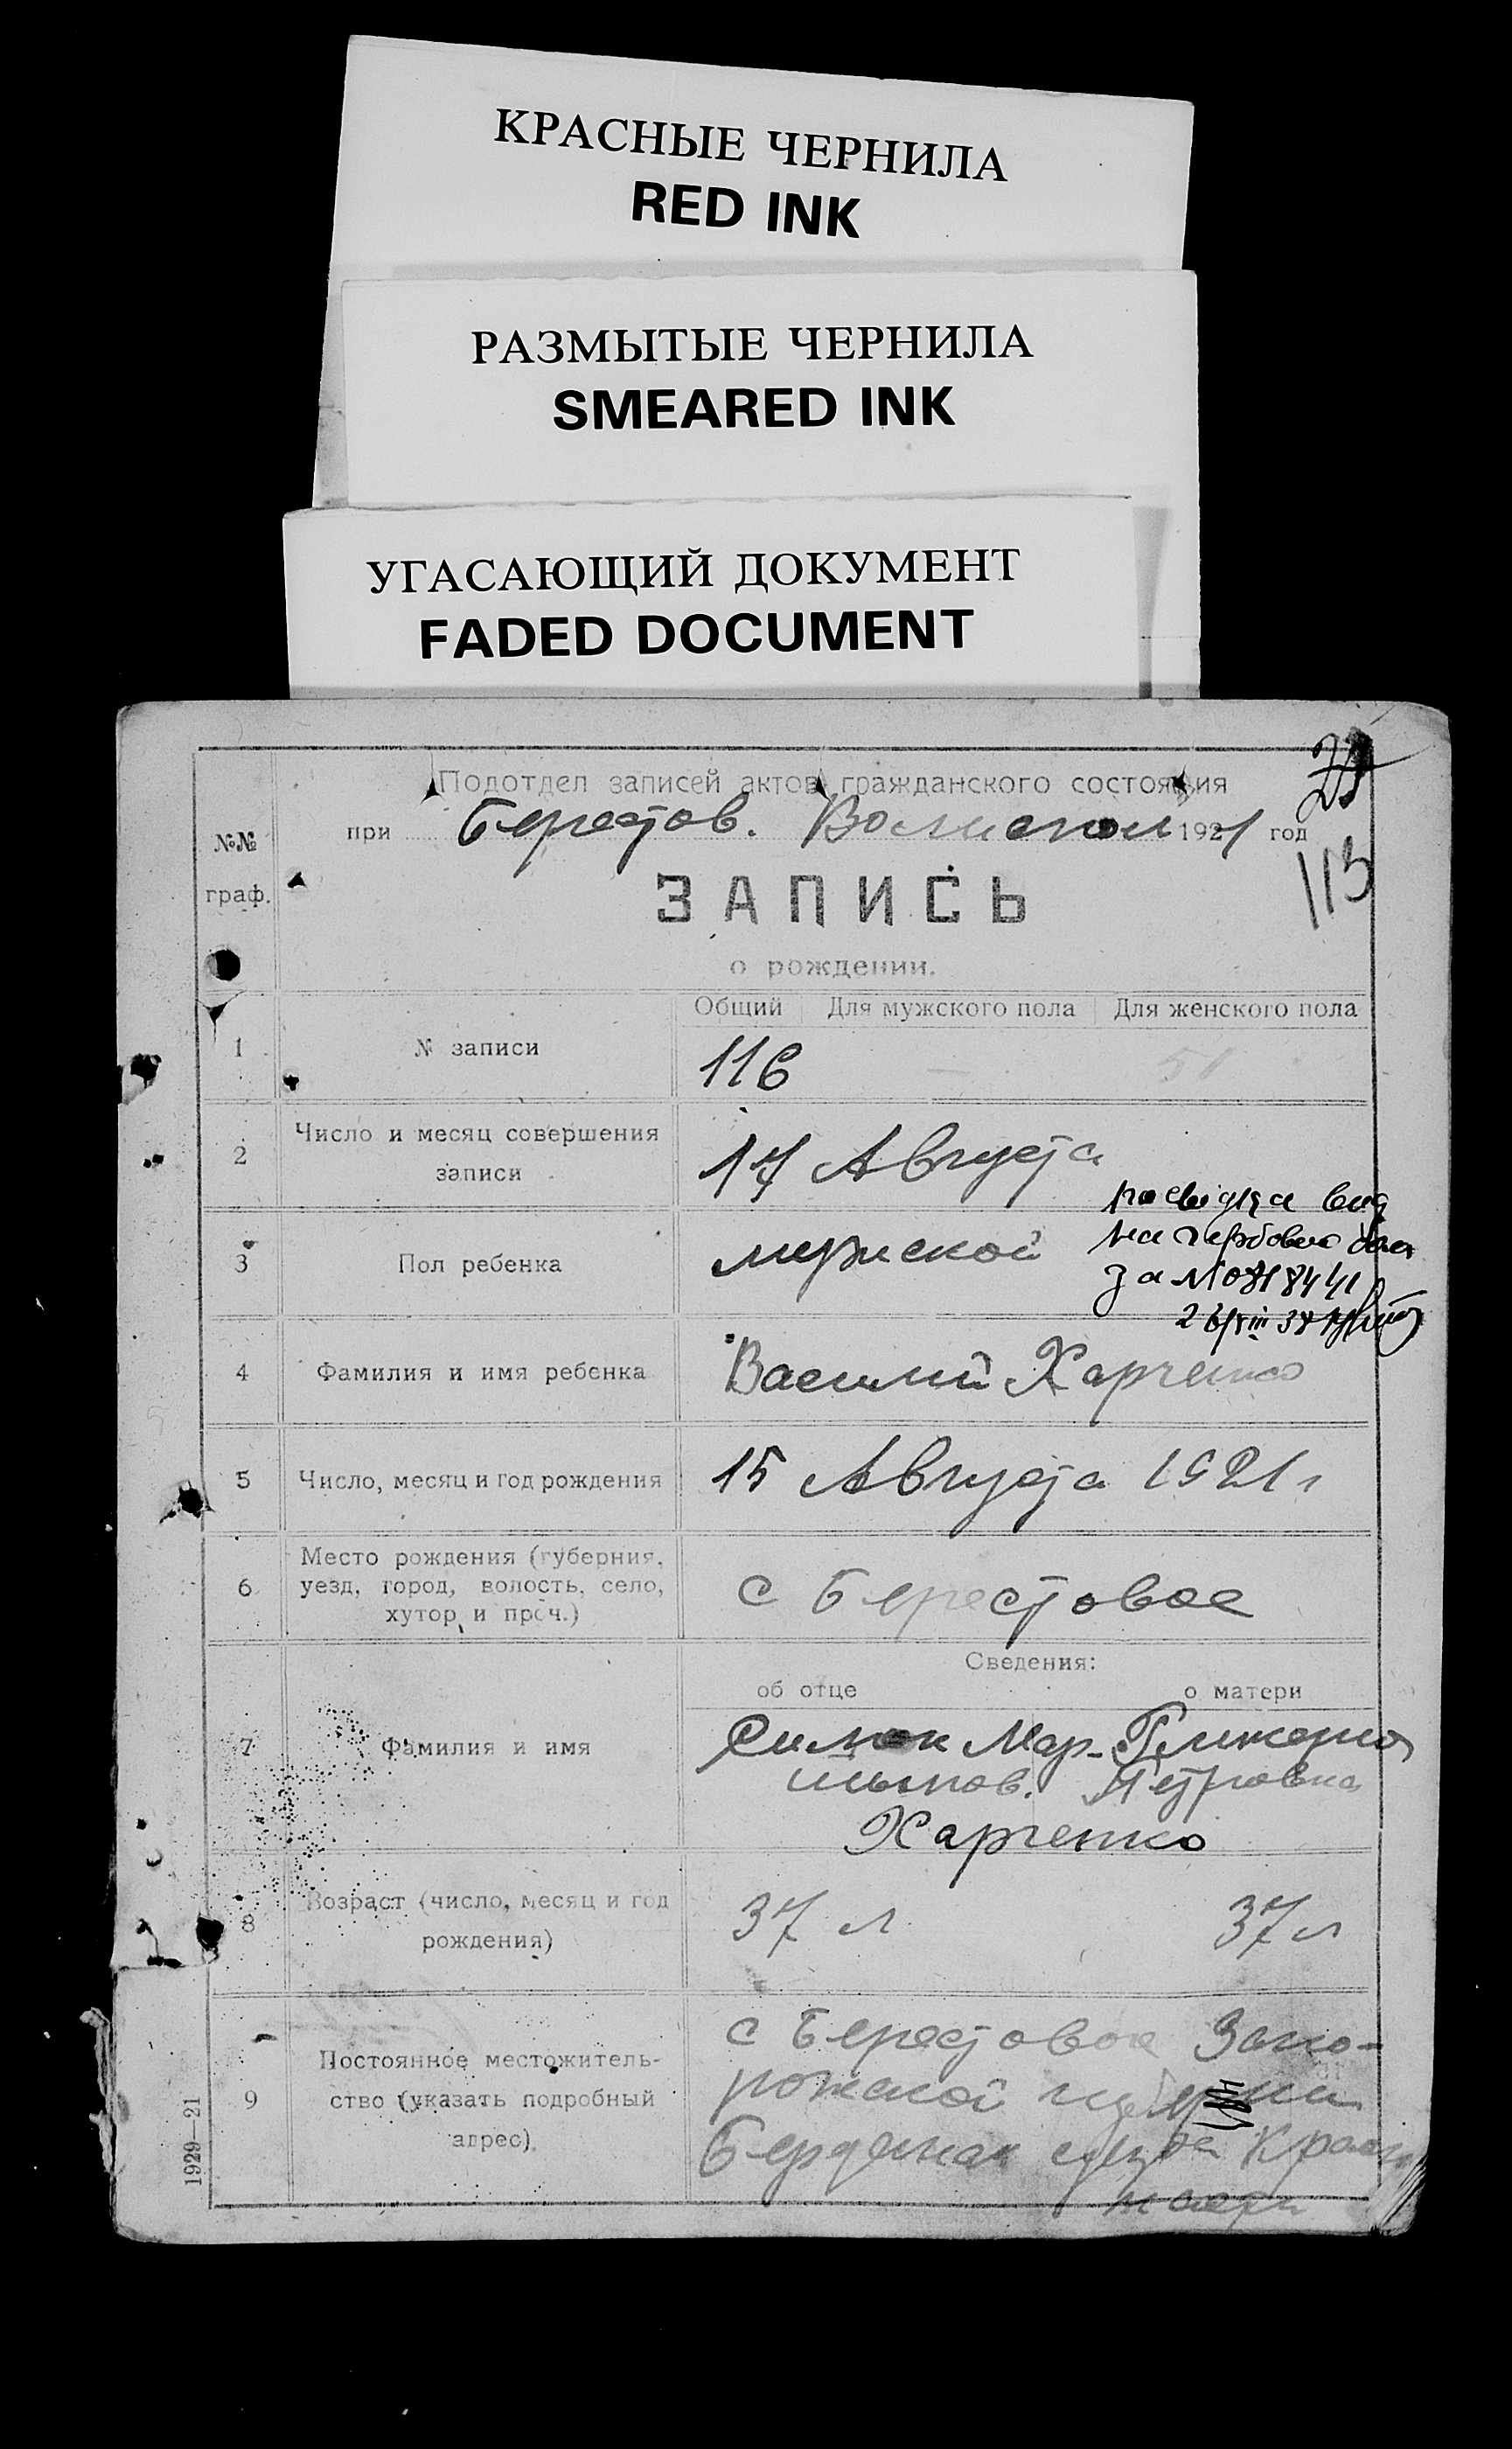 КРАСНЫЕ ЧЕРНИЛА
RED INK
РАЗМЫТЫЕ ЧЕРНИЛА
SMEARED INK
УГАСАЮЩИЙ ДОКУМЕНТ
FADED DOCUMENT
Подотдел записей актов гражданского состояния
при Берестов. 1921 год
113
№№
граф.
ЗАПИСЬ
о рождении.
Общий Для мужского пола Для женского пола
1 № записи 116
2 Число и месяц совершения
записи
17 Августа
3 Пол ребенка мужской
за №
4 Фамилия и имя ребенка Василий Харченко
5 Число, месяц и год рождения 15 Августа 1921 г
6 Место рождения (губерния,
уезд, город, волость, село,
хутор и проч.)
с Берестовое
Сведения:
об отце о матери
7 Фамилия и имя Симон Мар- Гликерия
Петровна
Харченко
8 Возраст (число, месяц и год
рождения)
37 л 37 л
9 Постоянное местожитель-
ство (указать подробный
адрес)
с Берестовое Запо-
рожской
Бердянск уезда
1929—21